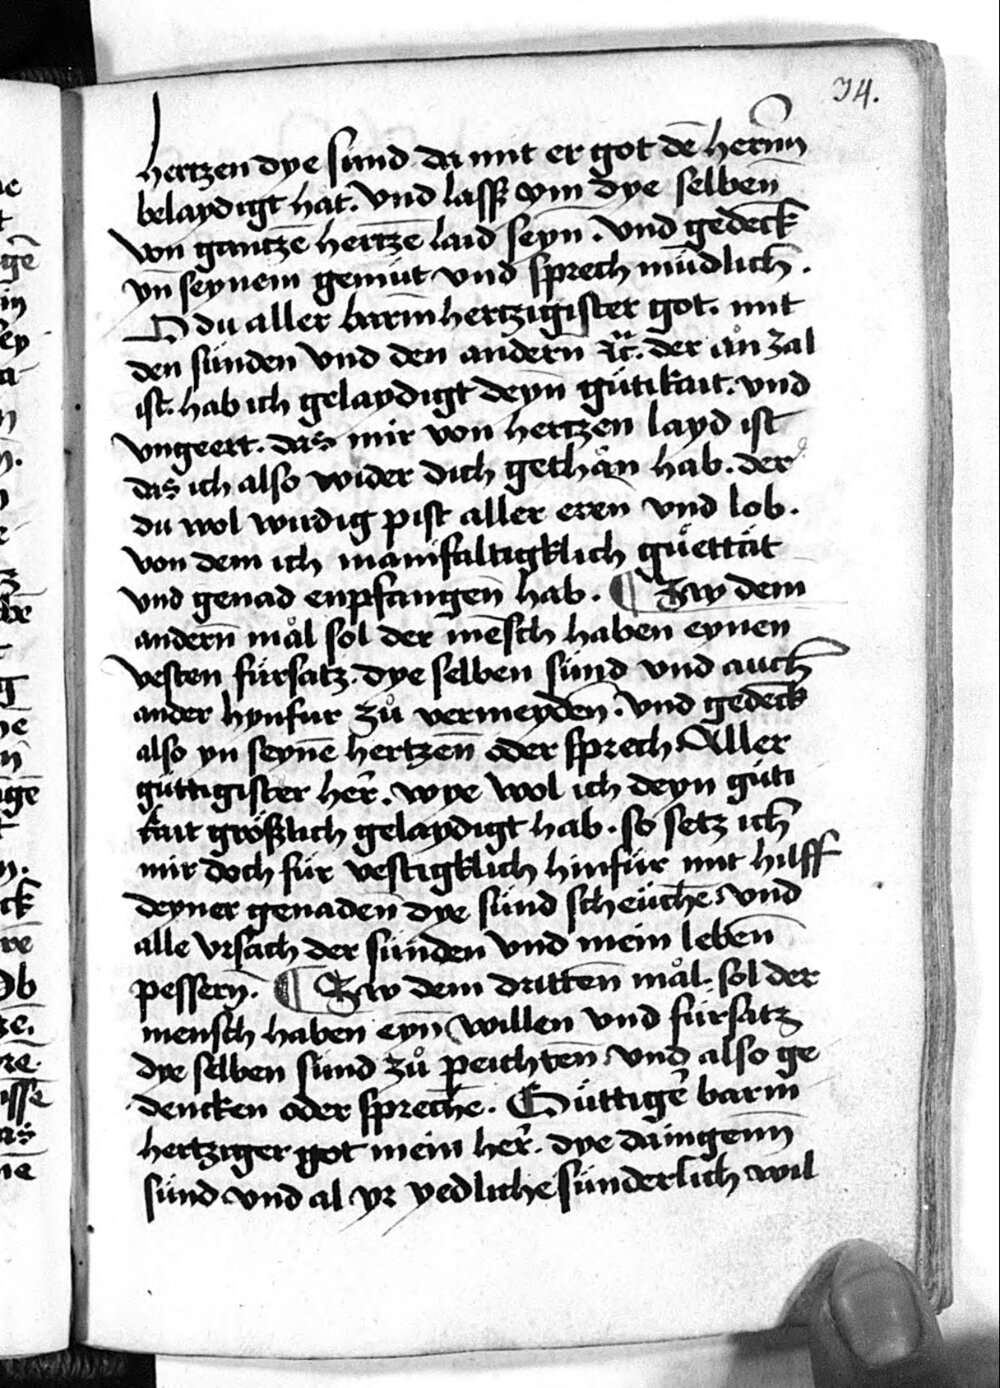 34.
hertzen dye sund da mit er got dē hern̄
belaydigt hat. Vnd lasß ym dye selben
von gantzē hertzē laid seyn̄. vnd gedeck̄
yn̄ seynem gemüt vnd sprech mūdlich.
O du aller barm̄hertzigister got. mit
den sünden vnd den andern̄ ꝛc̄. der ån zal
ist. hab ich gelaydigt deyn̄ gütikait. vnd
vngeert. das mir von hertzen layd ist
das ich also wider dich gethån hab. der
du wol wirdig pist aller eren̄ vnd lob.
von dem ich manifaltigklich gu̇ettät
vnd genad enpfangen̄ hab. ¶ Zw dem
andern̄ mål sol der mēsch haben eynen
vesten fürsatz. dye selben sünd vnd auch
ander hynfur zů vermeyden̄. vnd gedeck̄
also yn seynē hertzen̄ oder sprech. Aller
güttigister her̄. wye wol ich deyn güti
kait größlich gelaydigt hab. so setz ich
mir doch für vestigklich hinfür mit hilff
deyner genaden̄ dye sünd scheüchē vnd
alle vrsach der sünden vnd mein leben̄
pessern̄. ¶ Zw dem dritten̄ mål. sol der
mensch haben eyn̄ willen vnd fürsatz
dye selben sünd zů peichten̄ vnd also ge
dencken oder sprechē. Güttiger̄ barm
hertziger got mein her̄. dye daingenn̄
sünd vnd al yr yedliche sünderlich wil